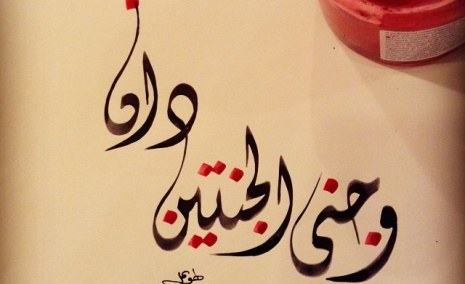 وجنى الجنتين
دان